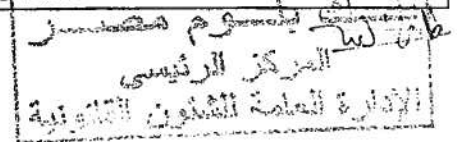 بنك بلوم مصر
المركز الرئيسى
الإدارة العامة للشئون القانونية